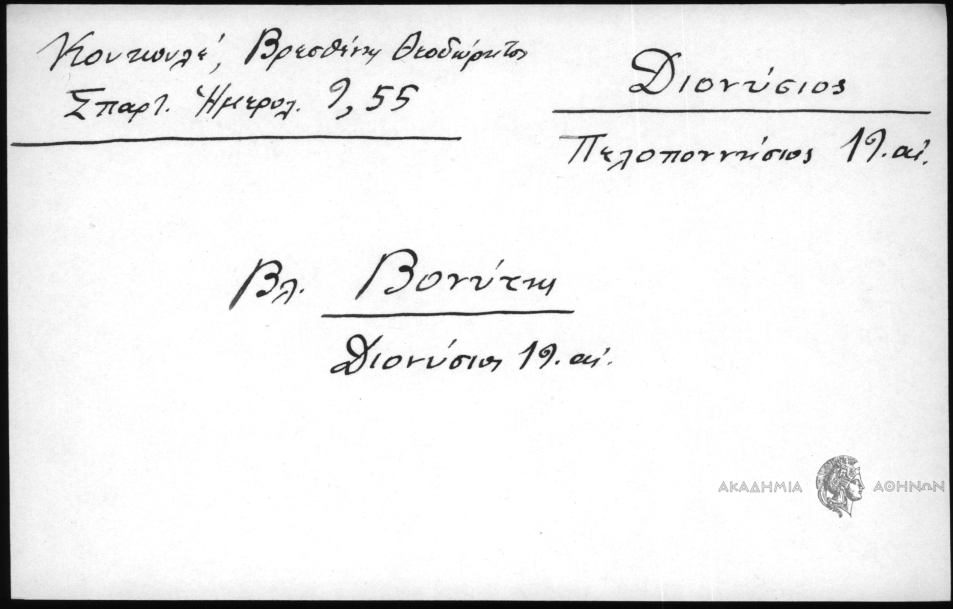 Κουκουλέ, Βρεσθένης Θεοδώρητος
Σπαρτ. Ημερολ. 9, 55
Διονύσιος
Πελοποννήσιος 19. αἰ.
Βλ. Βονύτης
Διονύσιος 19. αἰ.
ΑΚΑΔΗΜΙΑ ΑΘΗΝΩΝ